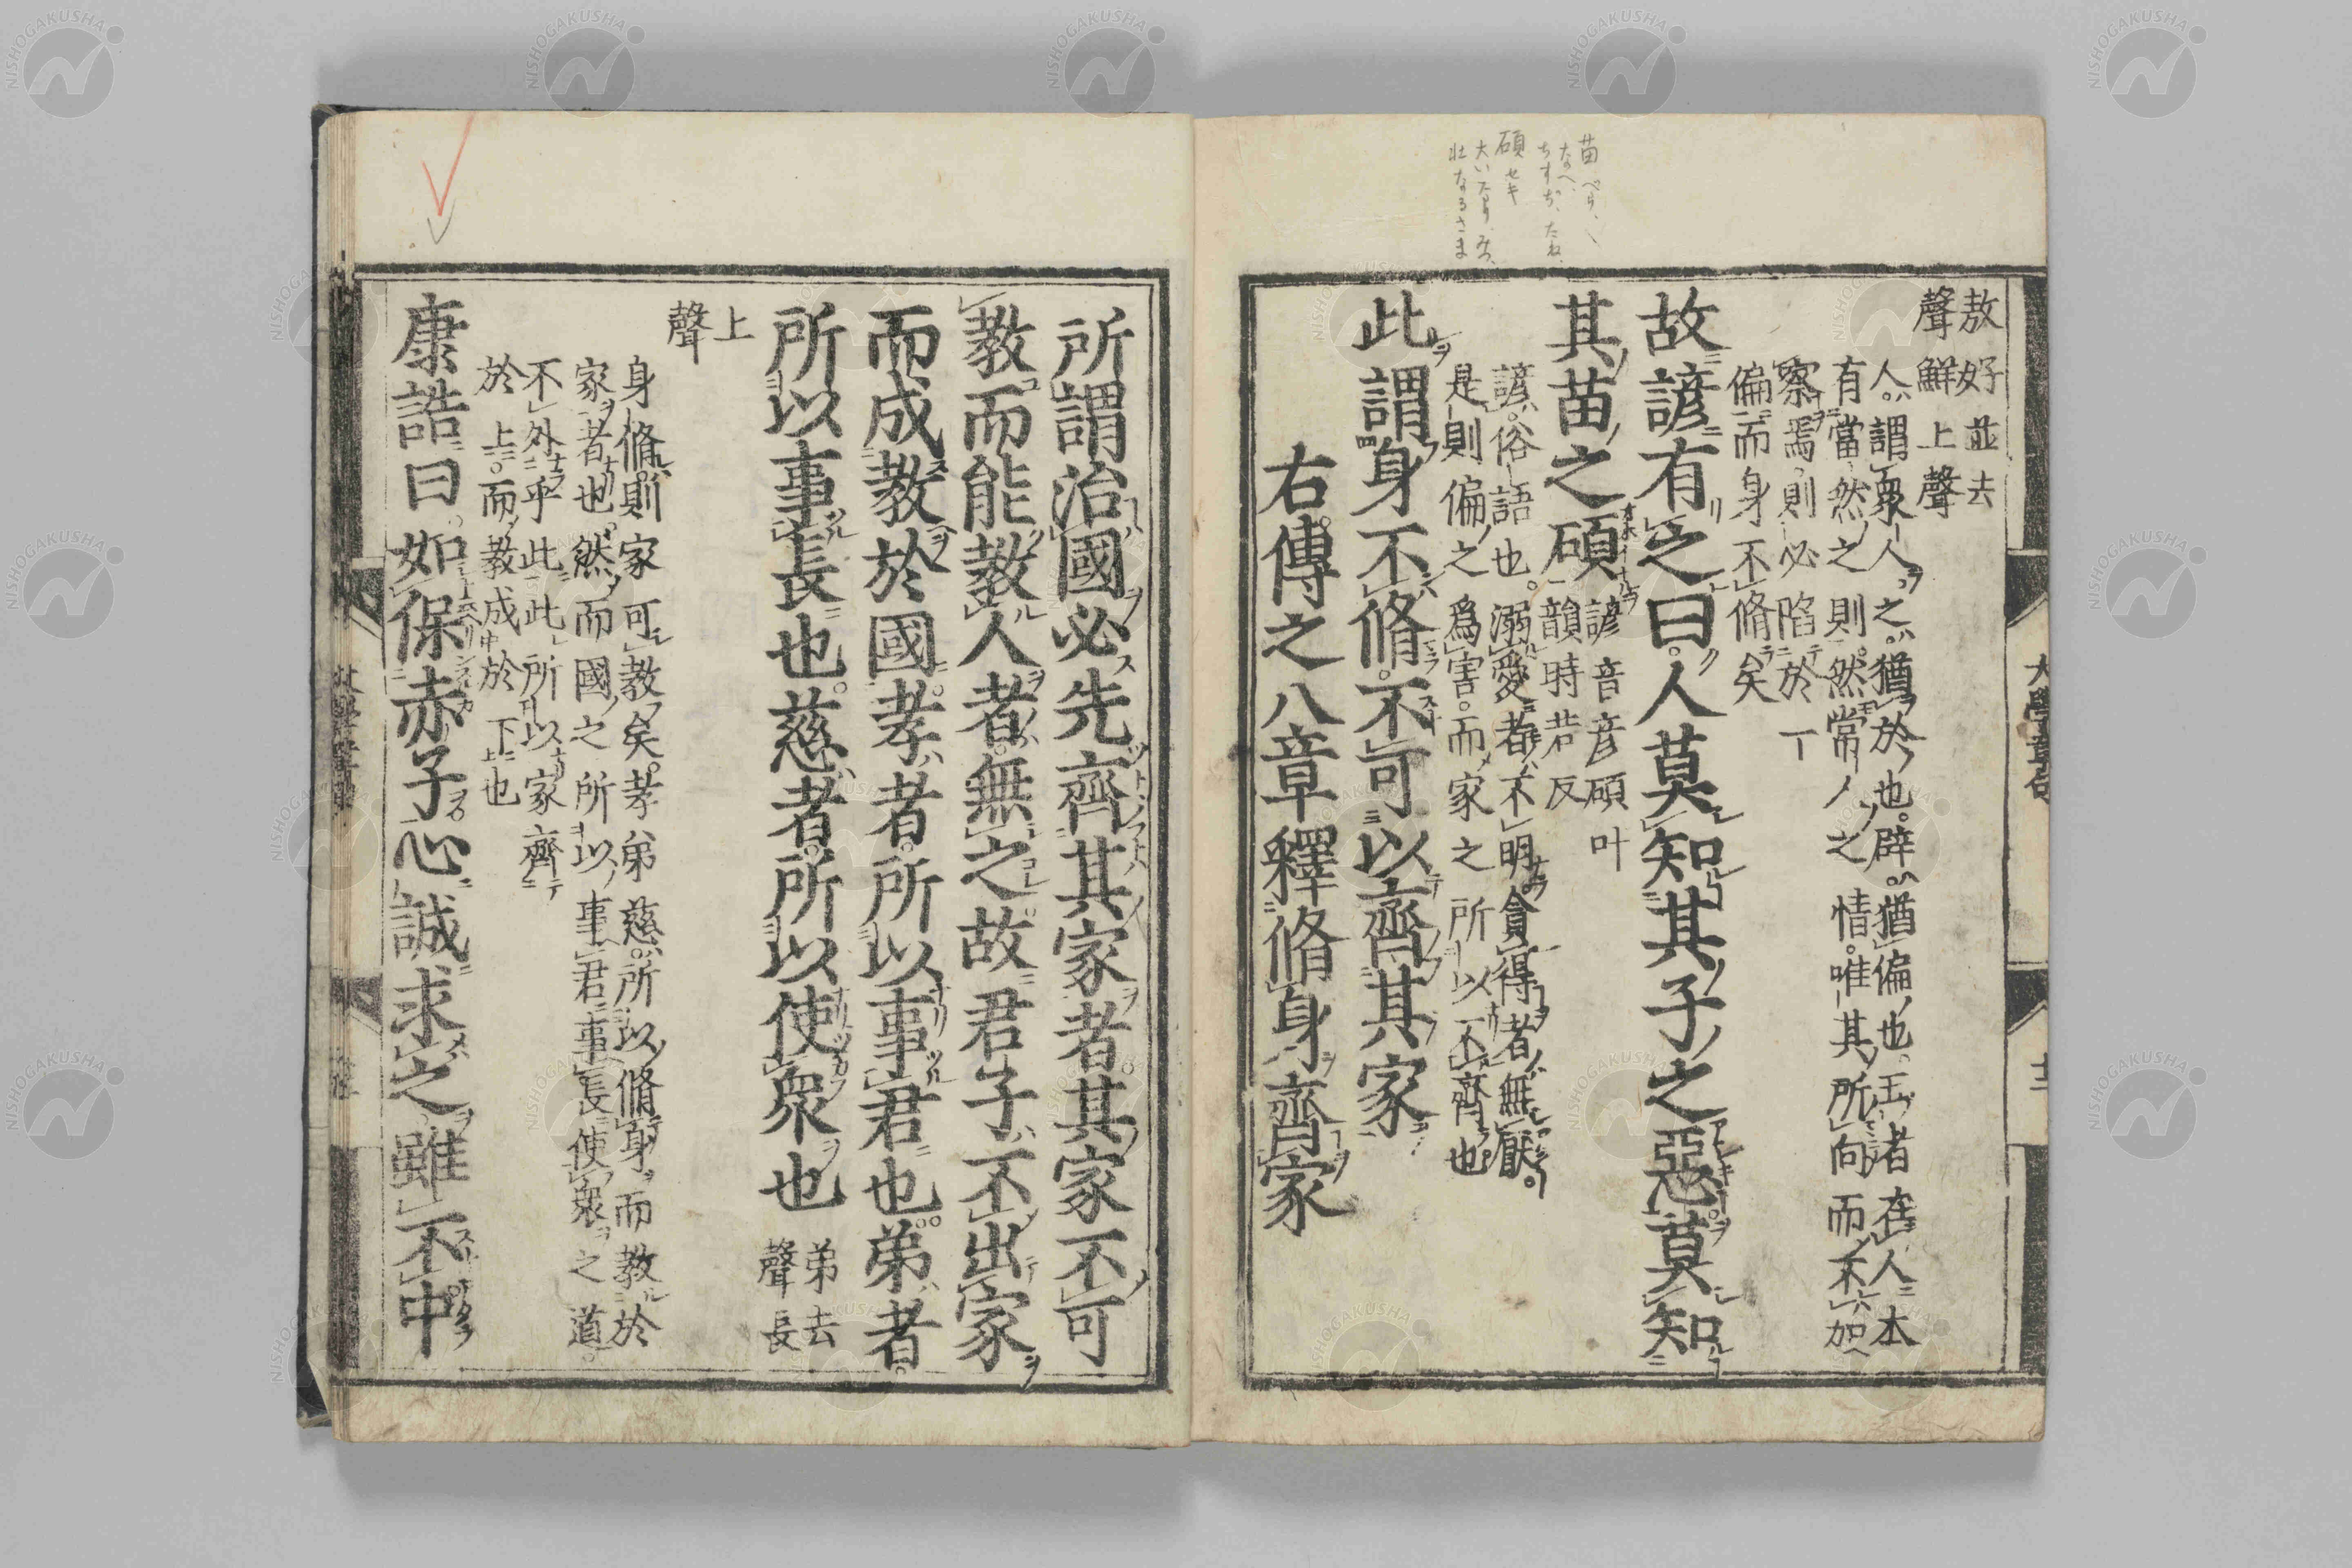 苗
碩 セキ
敖好並去
聲鮮上聲
人謂衆人之猶於也辟猶偏也五者在人本
有當然之則然常人之情唯其所向而不加
察焉則必陷於一
偏而身不脩矣
故諺有之曰人莫知其子之惡莫知
其苗之碩
諺音彦碩叶
韻時若反
諺俗語也溺愛者不明貪得者無厭
是則偏之爲害而家之所以不齊也
此謂身不脩不可以齊其家
右傳之八章釋脩身齊家
大學章句
十二
所謂治國必先齊其家者其家不可
教而能教人者無之故君子不出家
而成教於國孝者所以事君也弟者
所以事長也慈者所以使衆也
弟去
聲長
上
聲
身脩則家可教矣孝弟慈所以脩身而教於
家者也然而國之所以事君事長使衆之道
不外乎此此所以家齊
於上而教成於下也
康誥曰如保赤子心誠求之雖不中
NISHOGAKUSHA